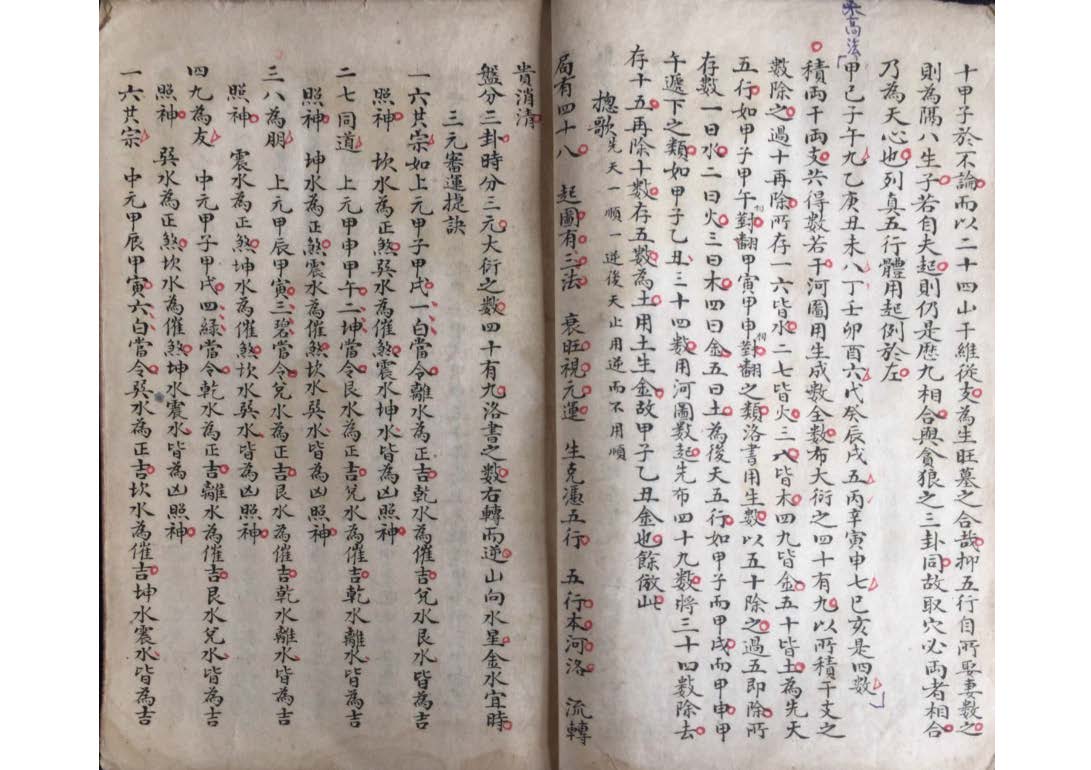 十甲子於不論而以二十四山干維從支為生旺墓之合哉抑五行自所要妻數之
則為隅八生子若自夫起則仍是歷九相合與貪狼之三卦同故取穴必両者相合
乃為天心也列真五行體用起例於左
甲己子午九乙庚丑未八丁壬卯酉六戊癸辰戌五丙辛寅申七巳亥是四數
積両干両支共得數若干河圖用生成數全數布大衍之四十有九以所積干支之
數除之過十再除所存一六皆水二七皆火三八皆木四九皆金五十皆土為先天
五行如甲子甲午對翻甲寅甲申對翻之類洛書用生數以五十除之過五即除所
存數一曰水二曰火三曰木四曰金五曰土為後天五行如甲子而甲戌而甲申甲
午遞下之類如甲子乙丑三十四數用河圖數起先布四十九數將三十四數除去
存十五再除十數存五數為土用土生金故甲子乙丑金也餘倣此
揔歌 先天一順一逆後天止用逆而不用順
局有四十八 起圖有三法 衰旺視元運 生克憑五行 五行本河洛 流轉
貴消清
盤分三卦時分三元大衍之數四十有九洛書之數右轉而逆山向水星金水宜時
三元審運捷訣
一六共宗如上元甲子甲戌一白當令離水為正吉乾水為催吉兌水艮水皆為吉
照神 坎水為正煞巽水為催煞震水坤水皆為凶照神
二七同道 上元甲申甲午二坤當令艮水為正吉兌水為催吉乾水離水皆為吉
照神 坤水為正煞震水為催煞坎水巽水皆為凶照神
三八為朋 上元甲辰甲寅三碧當令兌水為正吉艮水為催吉乾水離水皆為吉
照神 震水為正煞坤水為催煞坎水巽水皆為凶照神
四九為友 中元甲子甲戌四綠當令乾水為正吉離水為催吉艮水兌水皆為吉
照神 巽水為正煞坎水為催煞坤水震水皆為凶照神
一六共宗 中元甲辰甲寅六白當令巽水為正吉坎水為催吉坤水震水皆為吉